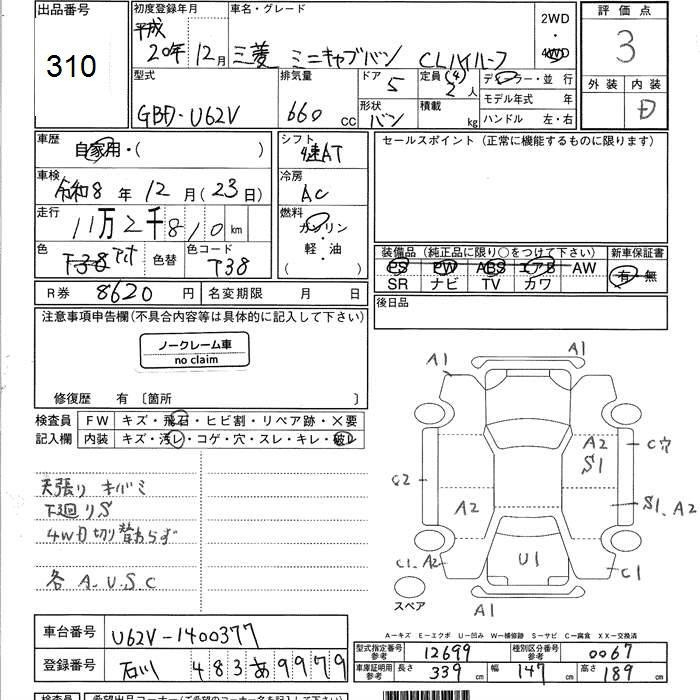 出品番号
310
初度登録年月
平成
20年12月
車名・グレード
三菱 ミニキャブバン CLハイルーフ
2WD
4WD
評価点
3
外装 内装
D
型式
GBD-U62V
排気量
660 cc
ドア
5
形状
バン
定員
(4)
2人
積載
kg
ディーラー・並行
モデル年式 年
ハンドル 左・右
車歴
自家用・( )
車検
令和8年12月(23日)
走行
11万2千810 km
色
T38 アオ
色替
色コード
T38
シフト
4速AT
冷房
AC
燃料
ガソリン
軽・油
( )
セールスポイント (正常に機能するものに限ります)
装備品 (純正品に限り○をつけて下さい)
PS PW ABS エアB AW
SR ナビ TV カワ
新車保証書
有・無
後日品
R券 8620 円
名変期限 月 日
注意事項申告欄(不具合内容等は具体的に記入して下さい)
ノークレーム車
no claim
修復歴 有 〔箇所 〕
検査員
記入欄
FW キズ・飛石・ヒビ割・リペア跡・×要
内装 キズ・汚レ・コゲ・穴・スレ・キレ・破レ
天張り キバミ
下廻りS
4WD切り替わらず
各 A.U.S.C
A1
A1
A2
S1
C穴
C2
A2
S1、A2
C1、A2
U1
C1
スペア
A1
A―キズ E―エクボ U―凹み W―補修跡 S―サビ C―腐食 XX―交換済
車台番号
U62V-1400377
登録番号
石川 483 あ 9979
型式指定番号
参考
12699
種別区分番号
参考
0067
車庫証明用
参考
長さ 339 cm
幅 147 cm
高さ 189 cm
検査員
希望出品コーナー(ご希望のコーナー名を記入下さい)